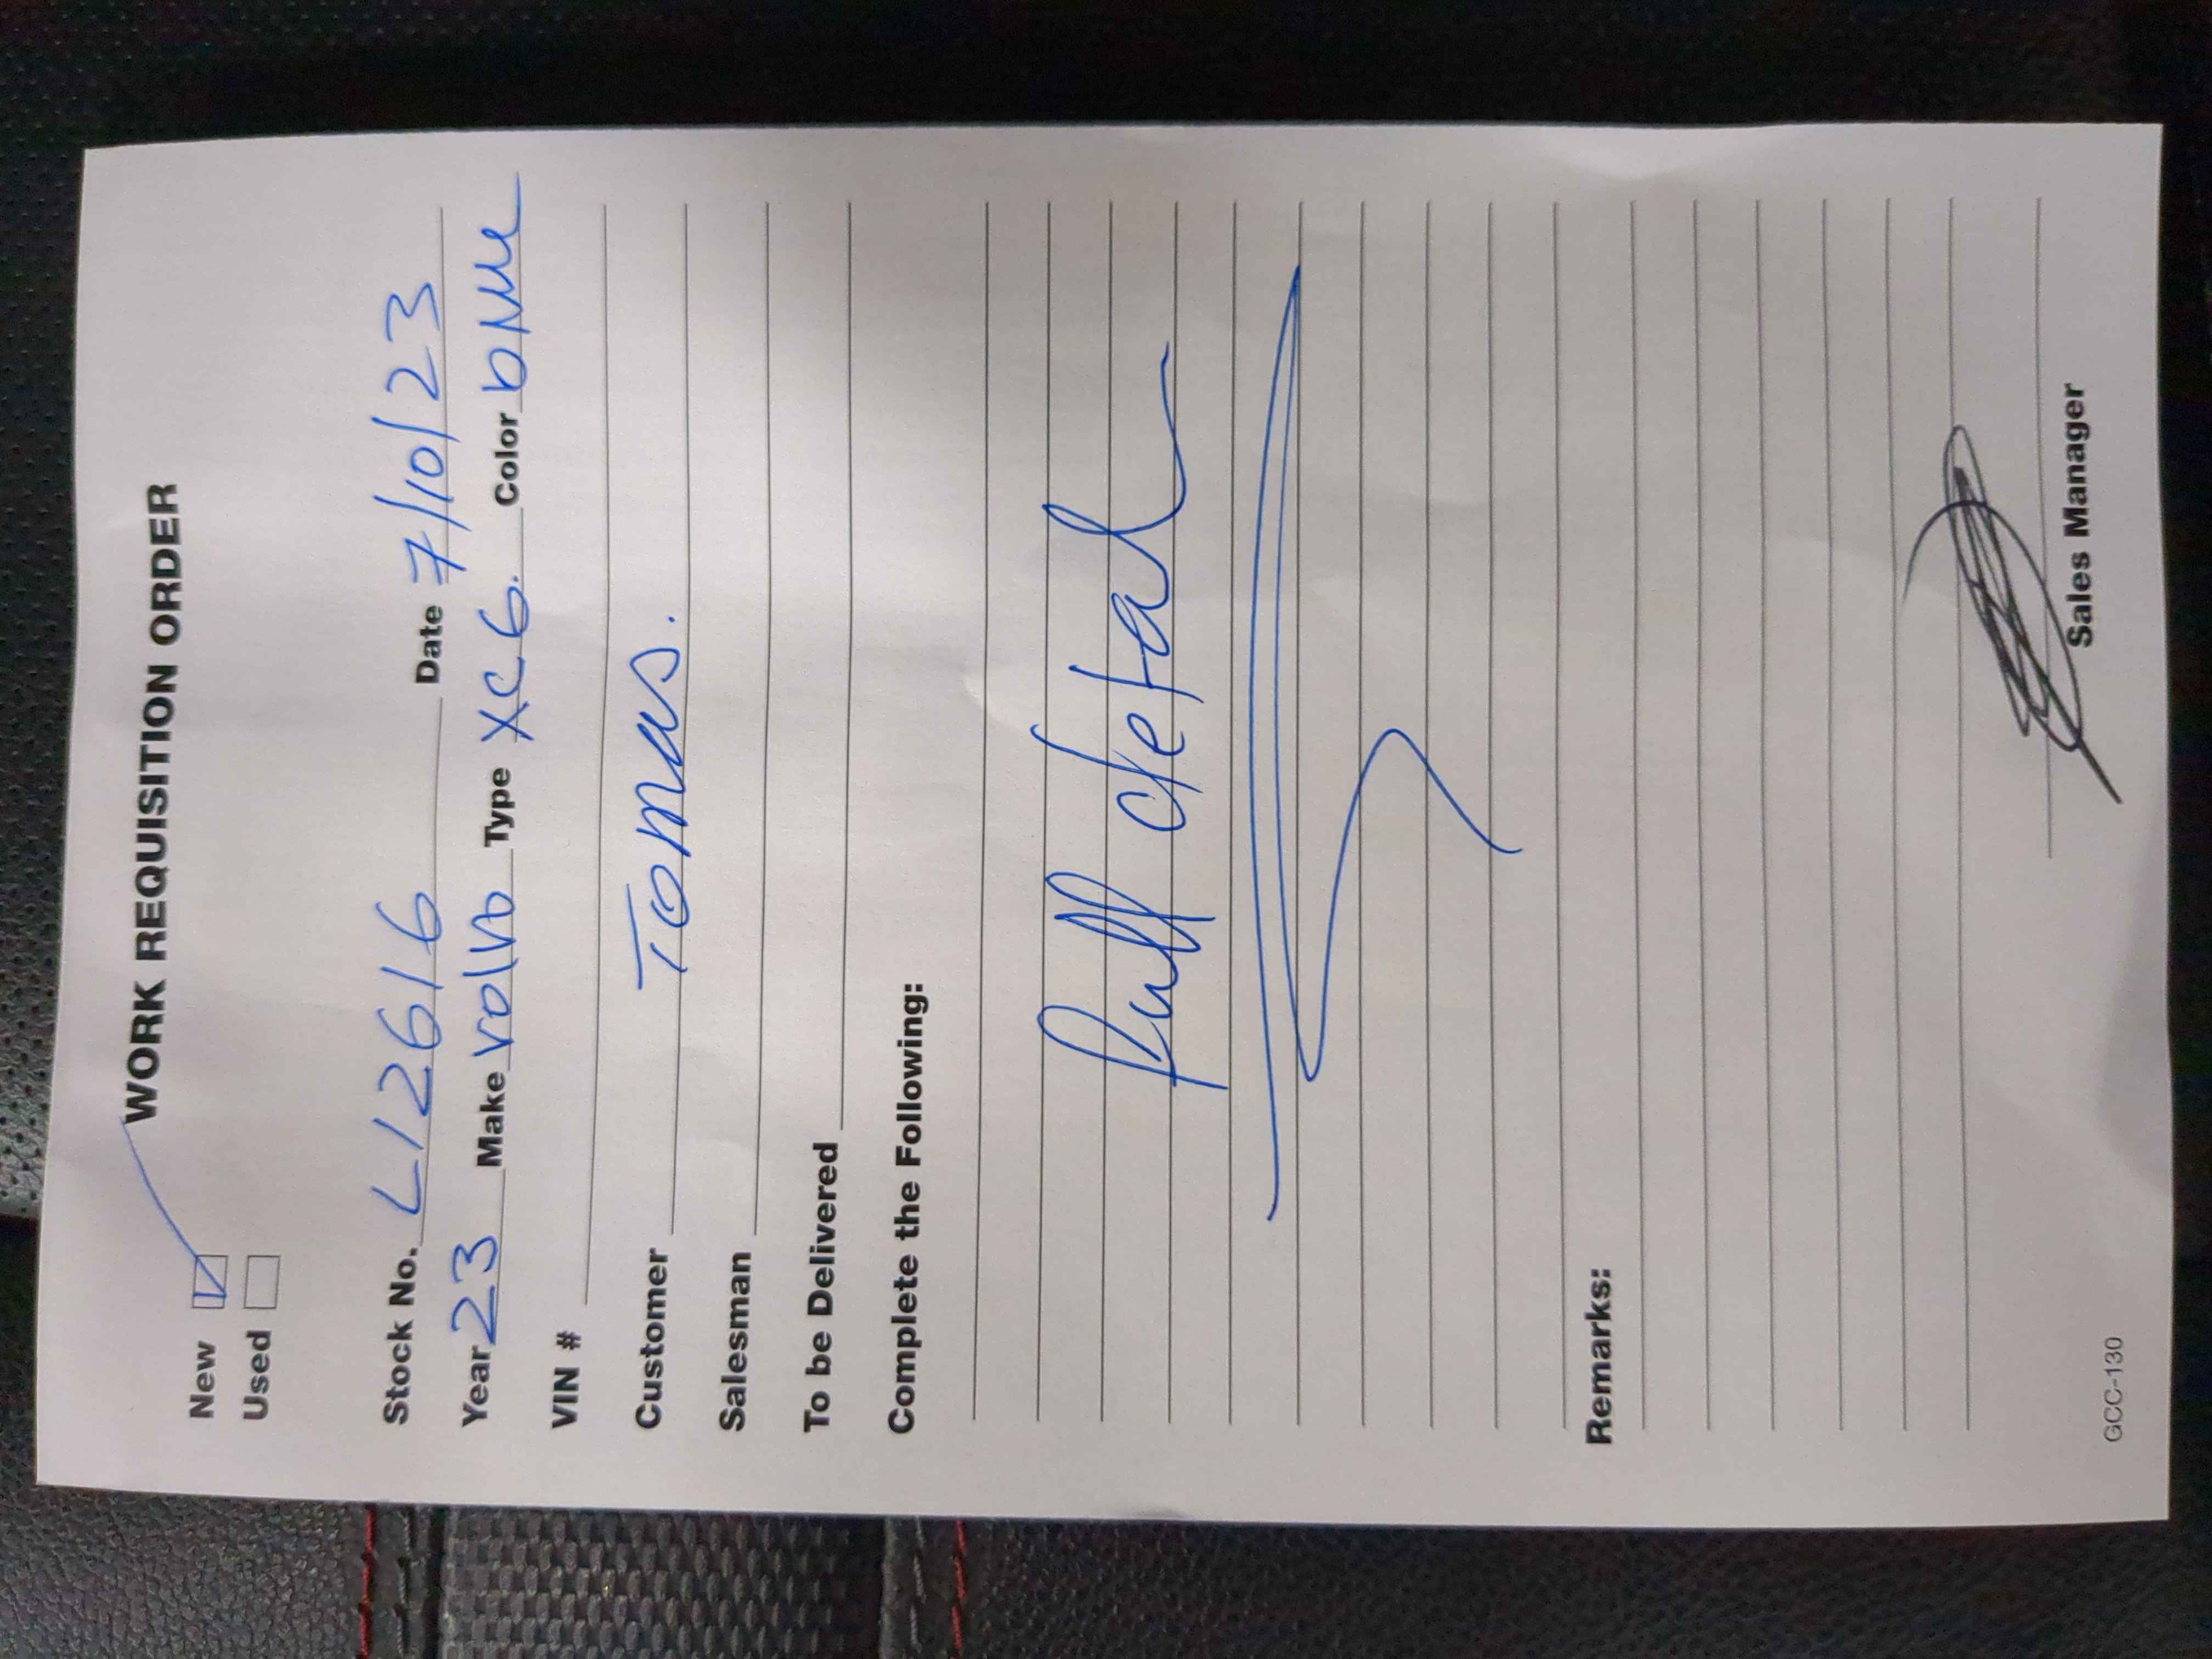 WORK REQUISITION ORDER
New
Used
Stock No. L12616 Date 7/10/23
Year 23 Make Volvo Type XC6. Color blue
VIN #
Customer Tomas.
Salesman
To be Delivered
Complete the Following:
Full detail
Remarks:
Sales Manager
GCC-130